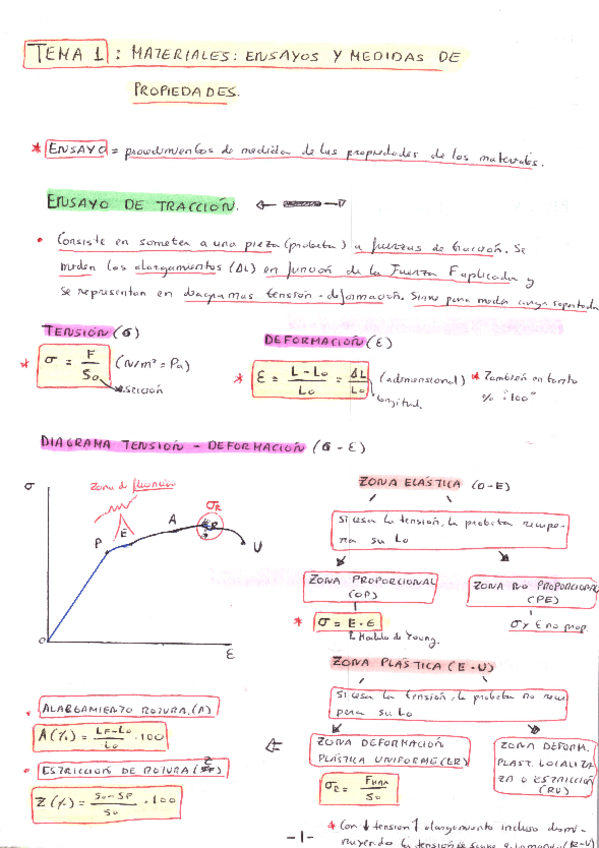 TEMA 1 : MATERIALES: ENSAYOS Y MEDIDAS DE
PROPIEDADES.
* ENSAYO = procedimientos de medida de las propiedades de los materiales.
ENSAYO DE TRACCIÓN.
• Consiste en someter a una pieza (probeta) a fuerzas de tracción. Se
miden los alargamientos (ΔL) en función de la Fuerza F aplicada y
se representan en diagramas tensión - deformación. Sirve para medir carga soportada
TENSIÓN (σ)
* σ = F / S₀ (N/m² = Pa)
sección
DEFORMACIÓN (ε)
* ε = L - L₀ / L₀ = ΔL / L₀ (adimensional) * También en tanto
% · 100
longitud
DIAGRAMA TENSIÓN - DEFORMACIÓN (σ - ε)
σ
Zona de fluencia
σR
P
E
A
R
U
O
ε
ZONA ELÁSTICA (O-E)
Si cesa la tensión, la probeta recupe-
ra su L₀
ZONA PROPORCIONAL
(OP)
* σ = E · ε
Módulo de Young.
ZONA NO PROPORCIONAL
(PE)
σ y ε no prop.
ZONA PLÁSTICA (E-U)
Si cesa la tensión, la probeta no recu
pera su L₀
ZONA DEFORMACIÓN
PLÁSTICA UNIFORME (ER)
σR = Fmax / S₀
ZONA DEFORM.
PLAST. LOCALIZA
DA O ESTRICCIÓN
(RU)
* Con ↓ tensión ↑ alargamiento incluso dismi-
nuyendo la tensión (R-U)
• ALARGAMIENTO ROTURA. (A)
A (%) = LF - L₀ / L₀ · 100
• ESTRICCIÓN DE ROTURA (Z)
Z (%) = S₀ - SF / S₀ · 100
- 1 -